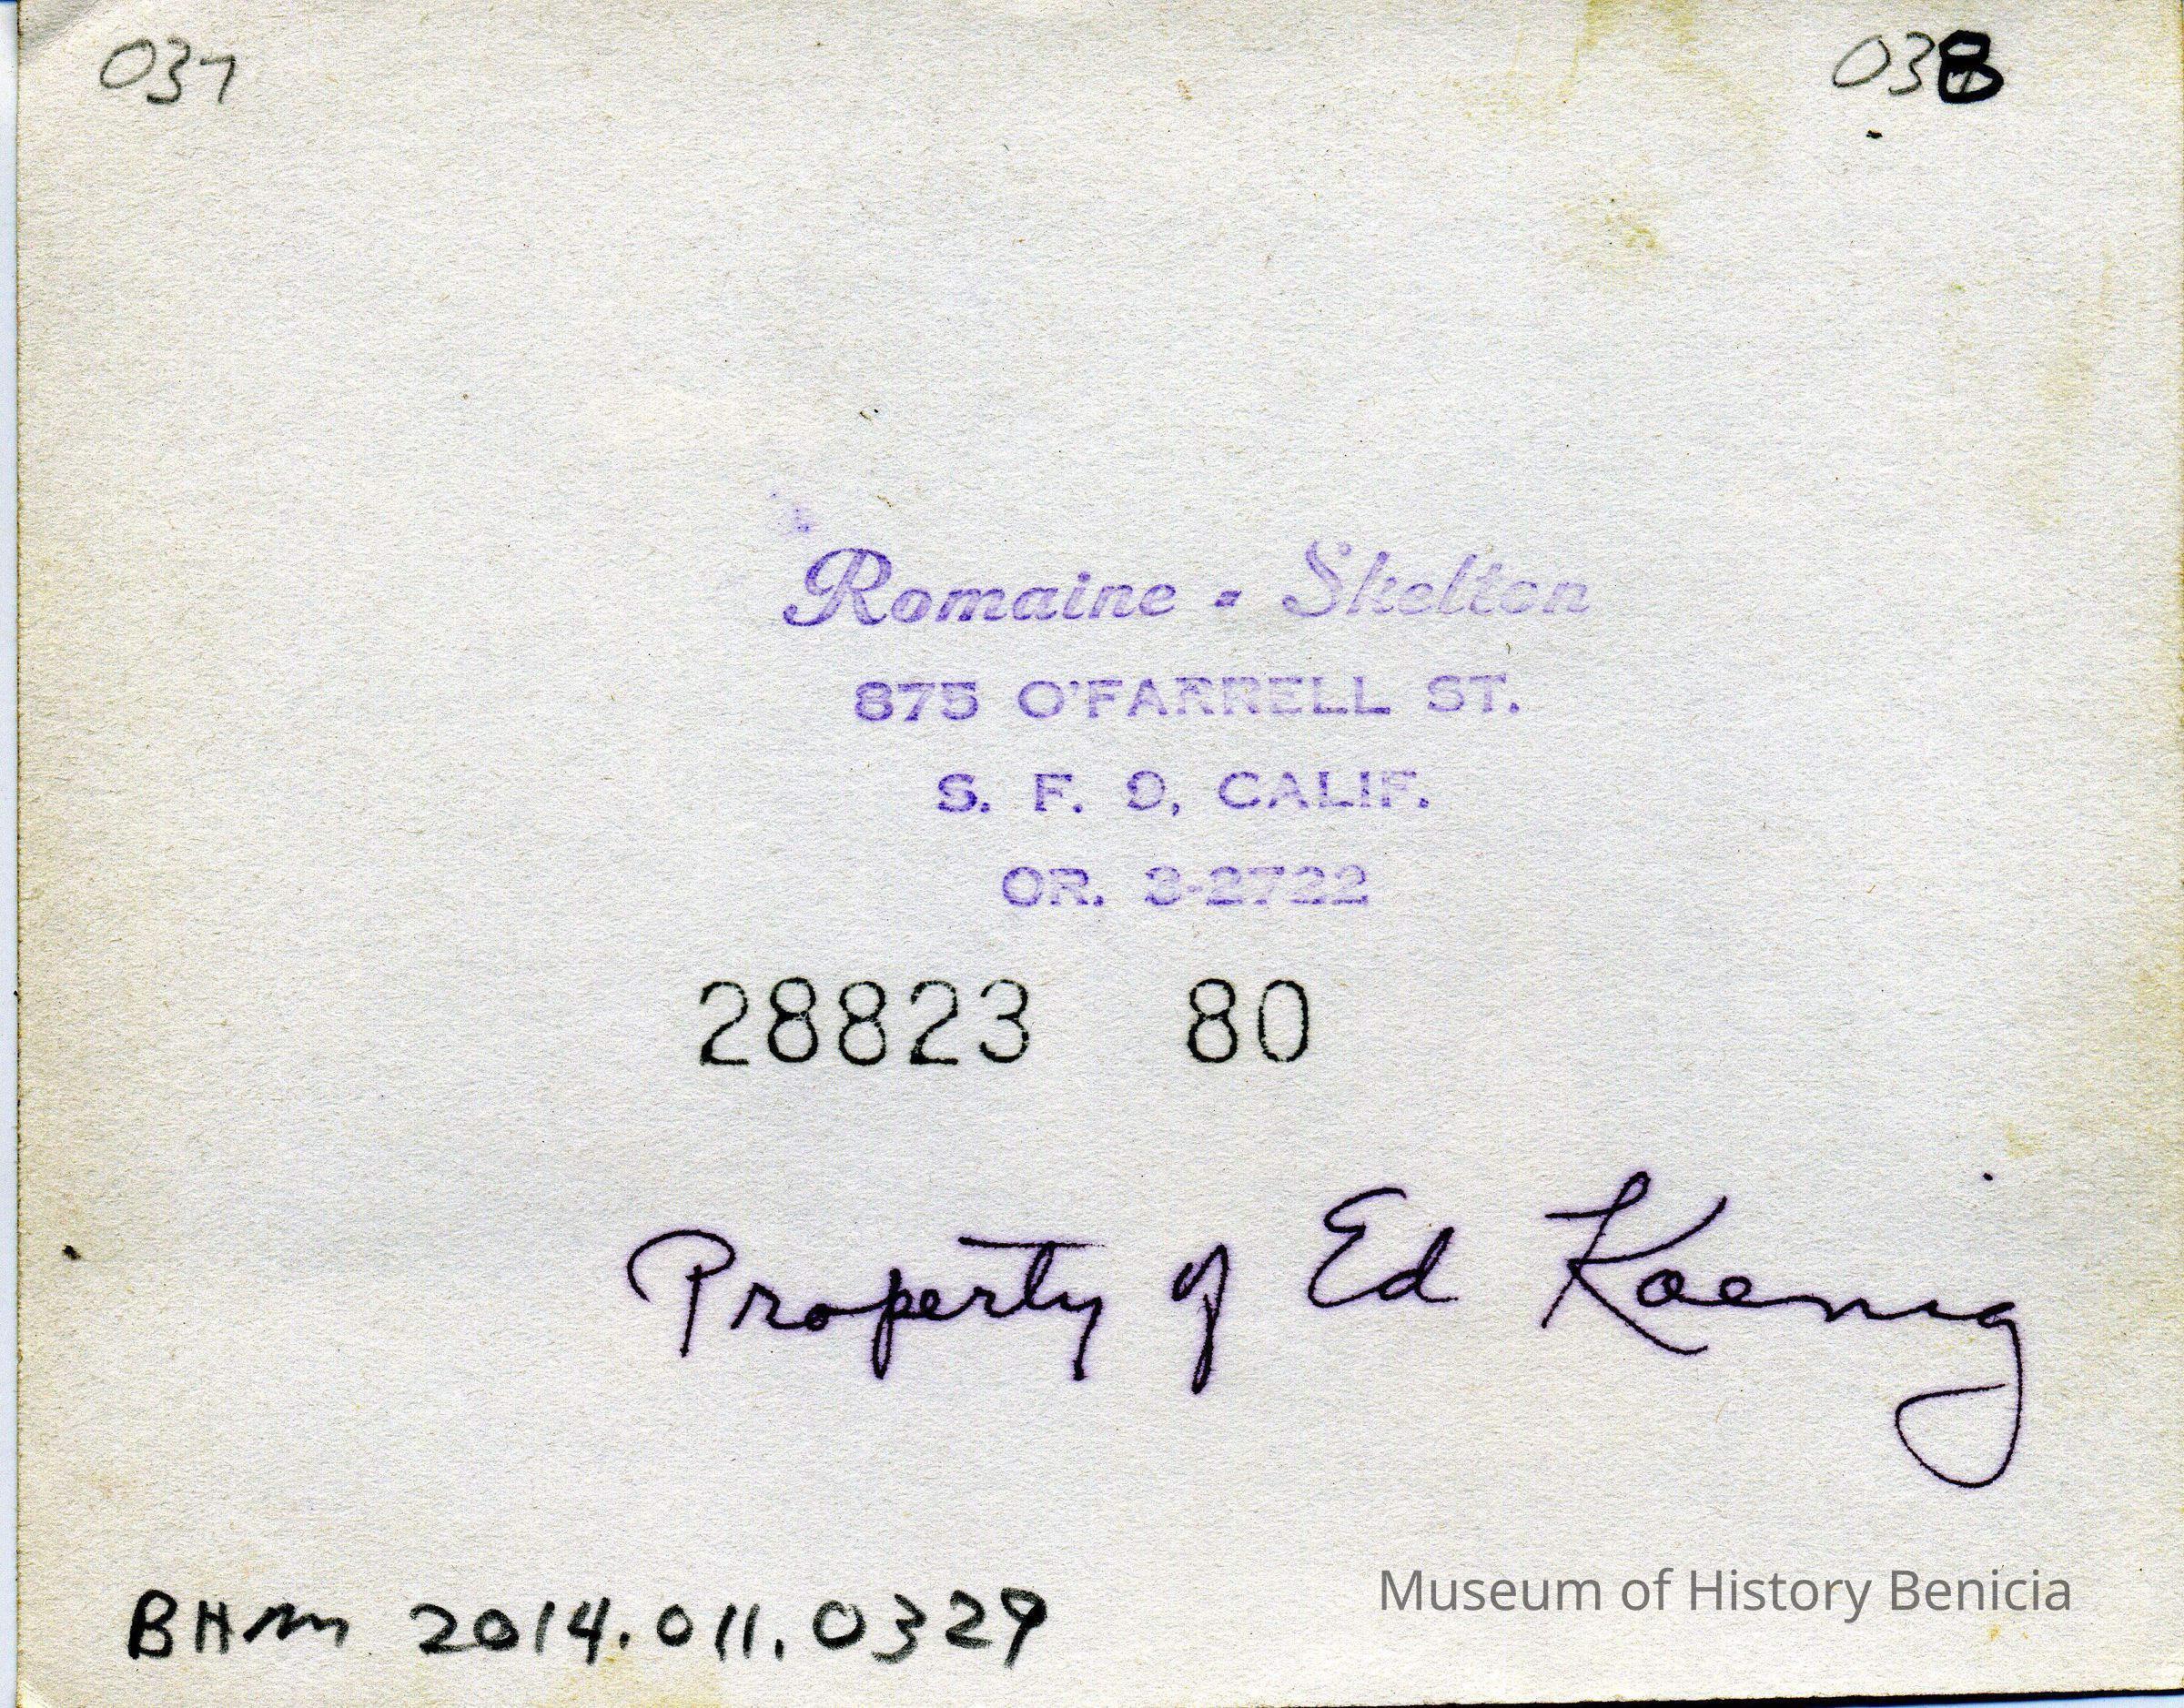 037 038
Romaine - Skelton
875 O'FARRELL ST.
S. F. 9, CALIF.
OR. 3-2722
28823 80
Property of Ed Koenig
Museum of History Benicia
BHM 2014.011.0329